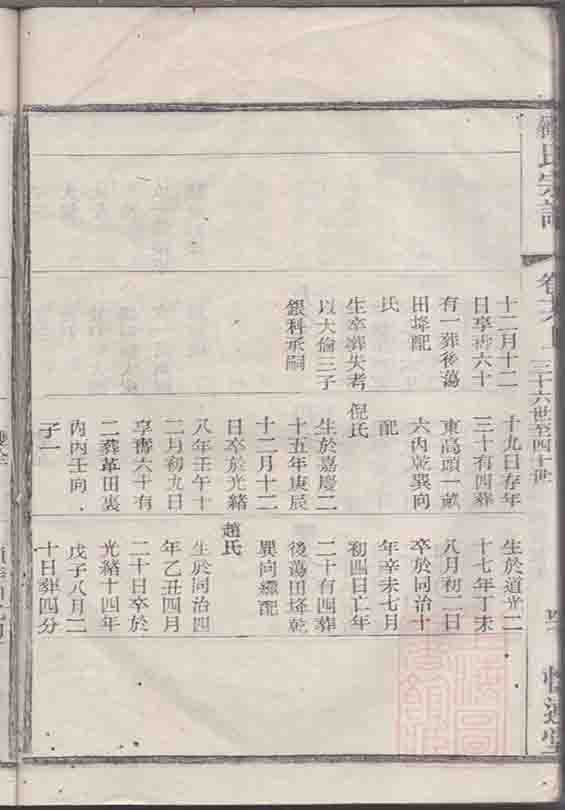 氏宗譜
卷
三十六世至四十世
十二月十二
日享壽六十
有一葬後蕩
田埄配
氏
生卒葬失考
以大倫三子
銀科承嗣
十九日存年
三十有四葬
東高頭一畝
六內乾巽向
配
倪氏
生於嘉慶二
十五年庚辰
十二月十二
日卒於光緒
八年壬午十
二月初九日
享壽六十有
二葬革田裏
內丙壬向
子一
生於道光二
十七年丁未
八月初二日
卒於同治十
年辛未七月
初四日亡年
二十有四葬
後蕩田埄乾
巽向繼配
趙氏
生於同治四
年乙丑四月
二十日卒於
光緒十四年
戊子八月二
十日葬四分